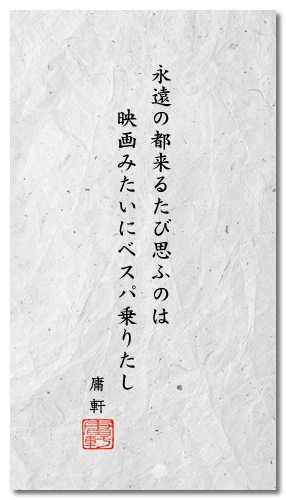 永遠の都来るたび思ふのは
映画みたいにベスパ乗りたし
庸軒